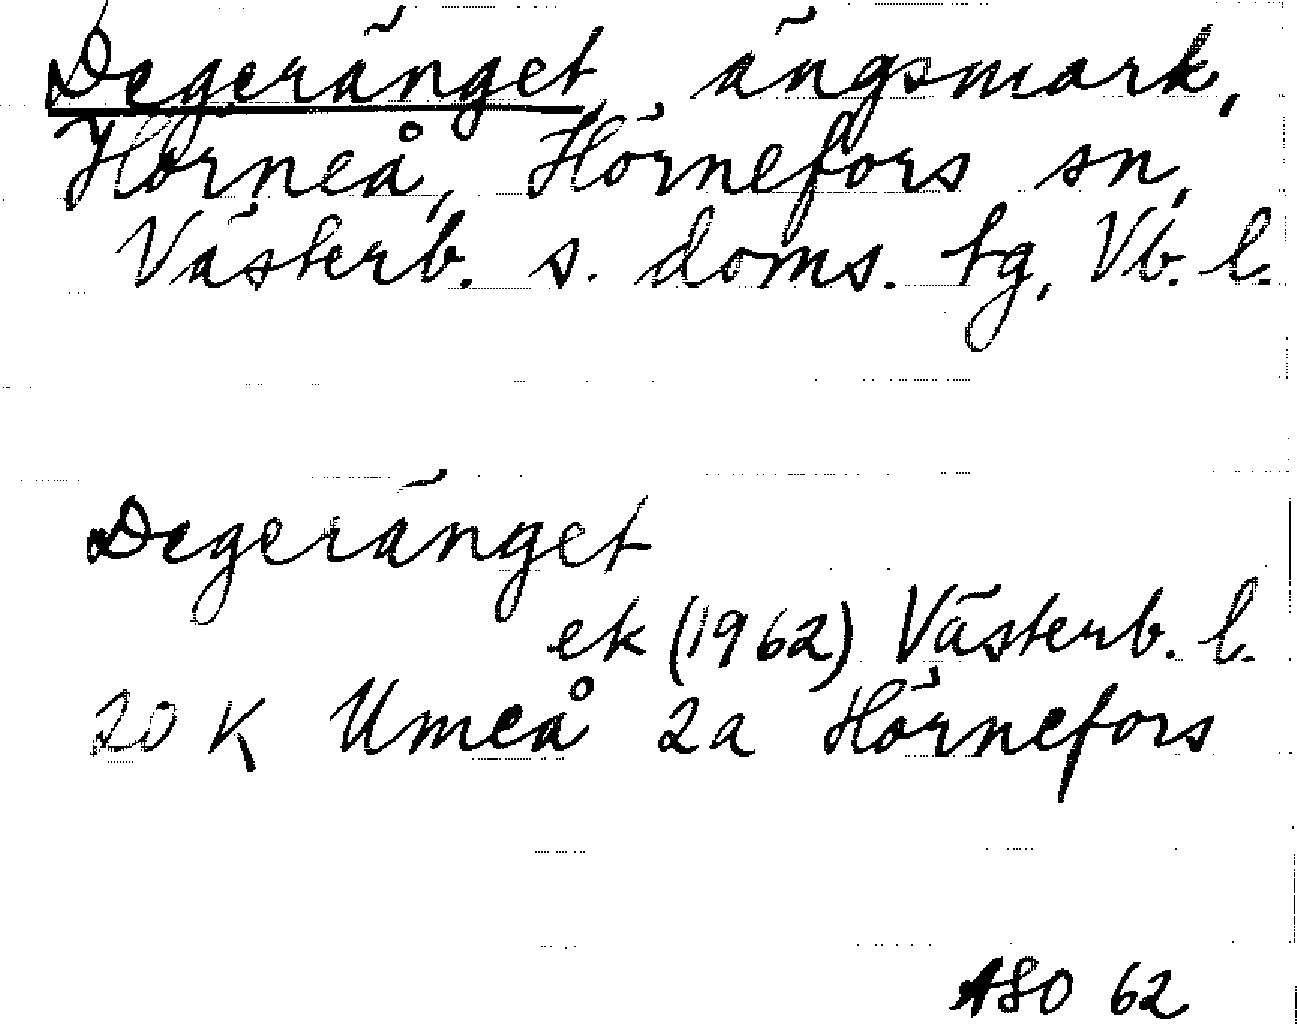 Degeränget ängsmark,
Hörneå, Hörnefors sn,
Västerb. s. doms. tg, Vb. l.
Degeränget
ek (1962) Västerb. l.
20 K Umeå 2a Hörnefors
ASO 62